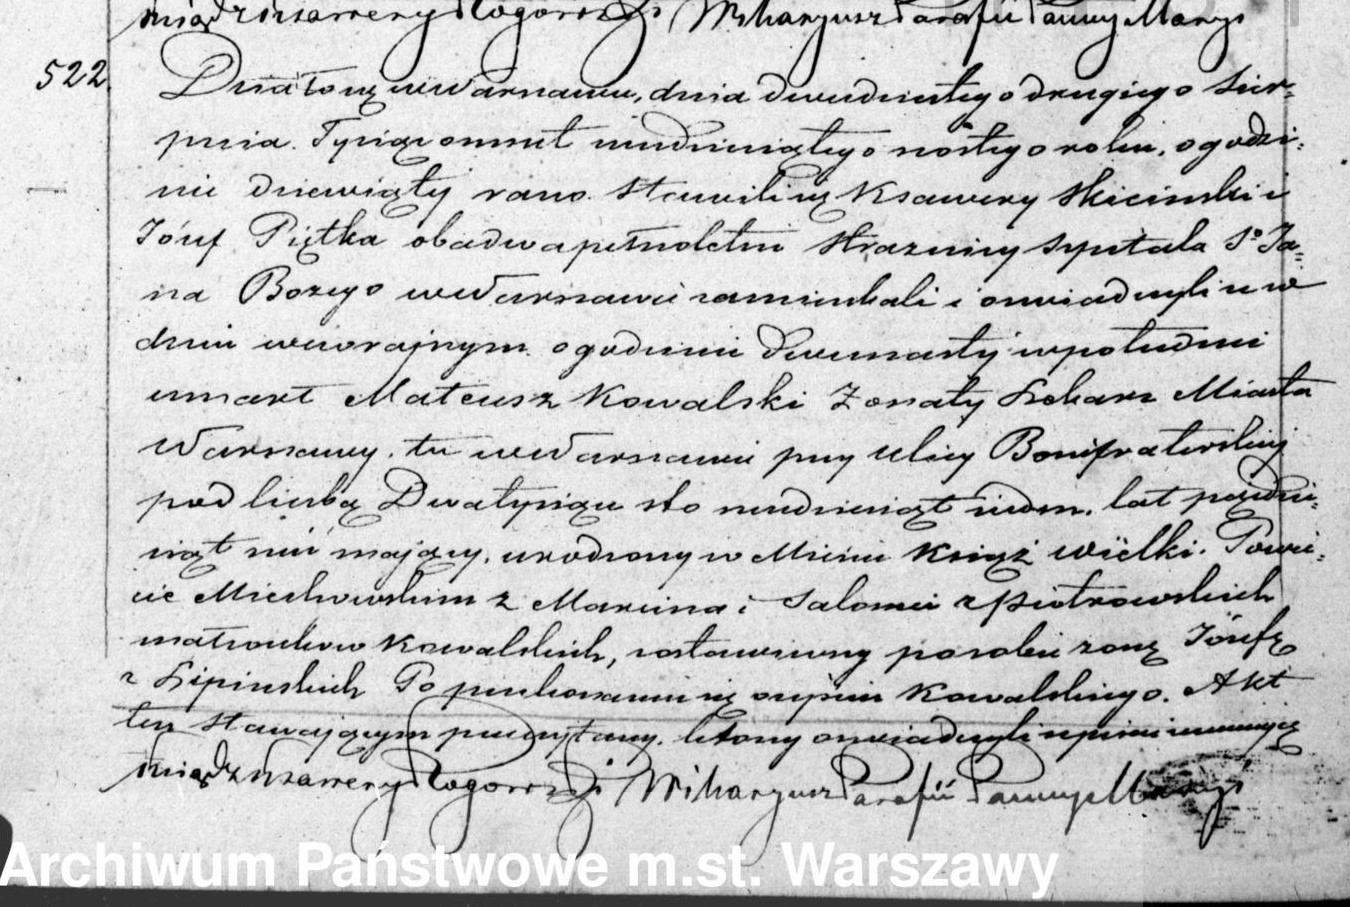 Xiądz Xsawery Rogoziński Wikaryusz Parafii Panny Maryi
522.
Działo się w Warszawie, dnia dwudziestego drugiego Sier=
pnia Tysiąc ośmset sześdziesiątego szóstego roku, o godzi=
nie dziewiąty rano. Stawili się Ksawery Skiciński i
Józef Piętka obadwa pełnoletni Strażnicy Szpitala Sº Ja=
na Bożego w Warszawie zamieszkali i oświadczyli że w
dniu wczorajszym o godzinie dwunasty w południe
umarł Mateusz Kowalski Żonaty Lekarz Miasta
Warszawy, tu w Warszawie przy Ulicy Bonifraterskiej
pod liczbą Dwa tysiące sto sześdziesiąt siedm, lat pięćdzie=
siąt mający, urodzony w Mieście Książ wielki. Powie=
cie Miechowskim z Marcina i Salomei z Piotrowskich
małżonków Kowalskich, zostawiwszy po sobie żonę Józefę
z Lipińskich Po przekonaniu się o zejściu Kowalskiego. Akt
ten stawającym przeczytany, którzy oświadczyli iż pisać nie umieją
Xiądz Xsawery Rogoziński Wikaryusz Parafii Panny Maryi
Archiwum Państwowe m.st. Warszawy